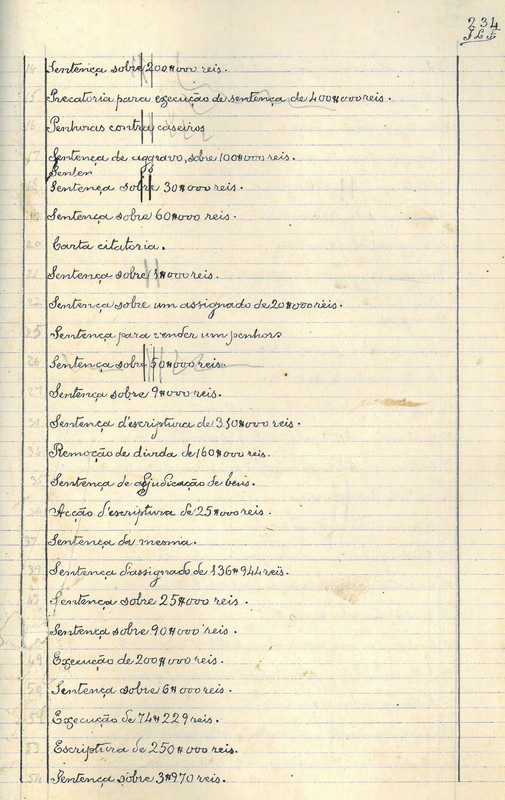 234
14 Sentença sobre 200#000 reis.
15 Precatoria para execução de sentença de 400#000 reis.
16 Penhoras contra caseiros
17 Sentença de aggravo, sobre 100#000 reis.
Senten
18 Sentença sobre 30#000 reis.
19 Sentença sobre 60#000 reis.
20 Carta citatoria.
21 Sentença sobre 1#000 reis.
22 Sentença sobre um assignado de 20#000 reis.
25 Sentença para vender um penhor.
26 Sentença sobre 50#000 reis.
27 Sentença sobre 9#000 reis.
31 Sentença d'escriptura de 350#000 reis.
34 Remoção de divida de 160#000 reis.
35 Sentença de adjudicação de beis.
36 Acção d'escriptura de 25#000 reis.
37 Sentença da mesma.
39 Sentença d'assignado de 136#944 reis.
Sentença sobre 25#000 reis.
Sentença sobre 90#000 reis.
49 Execução de 200#000 reis.
50 Sentença sobre 6#000 reis.
Execução de 74#229 reis.
53 Escriptura de 250#000 reis.
54 Sentença sobre 3#970 reis.